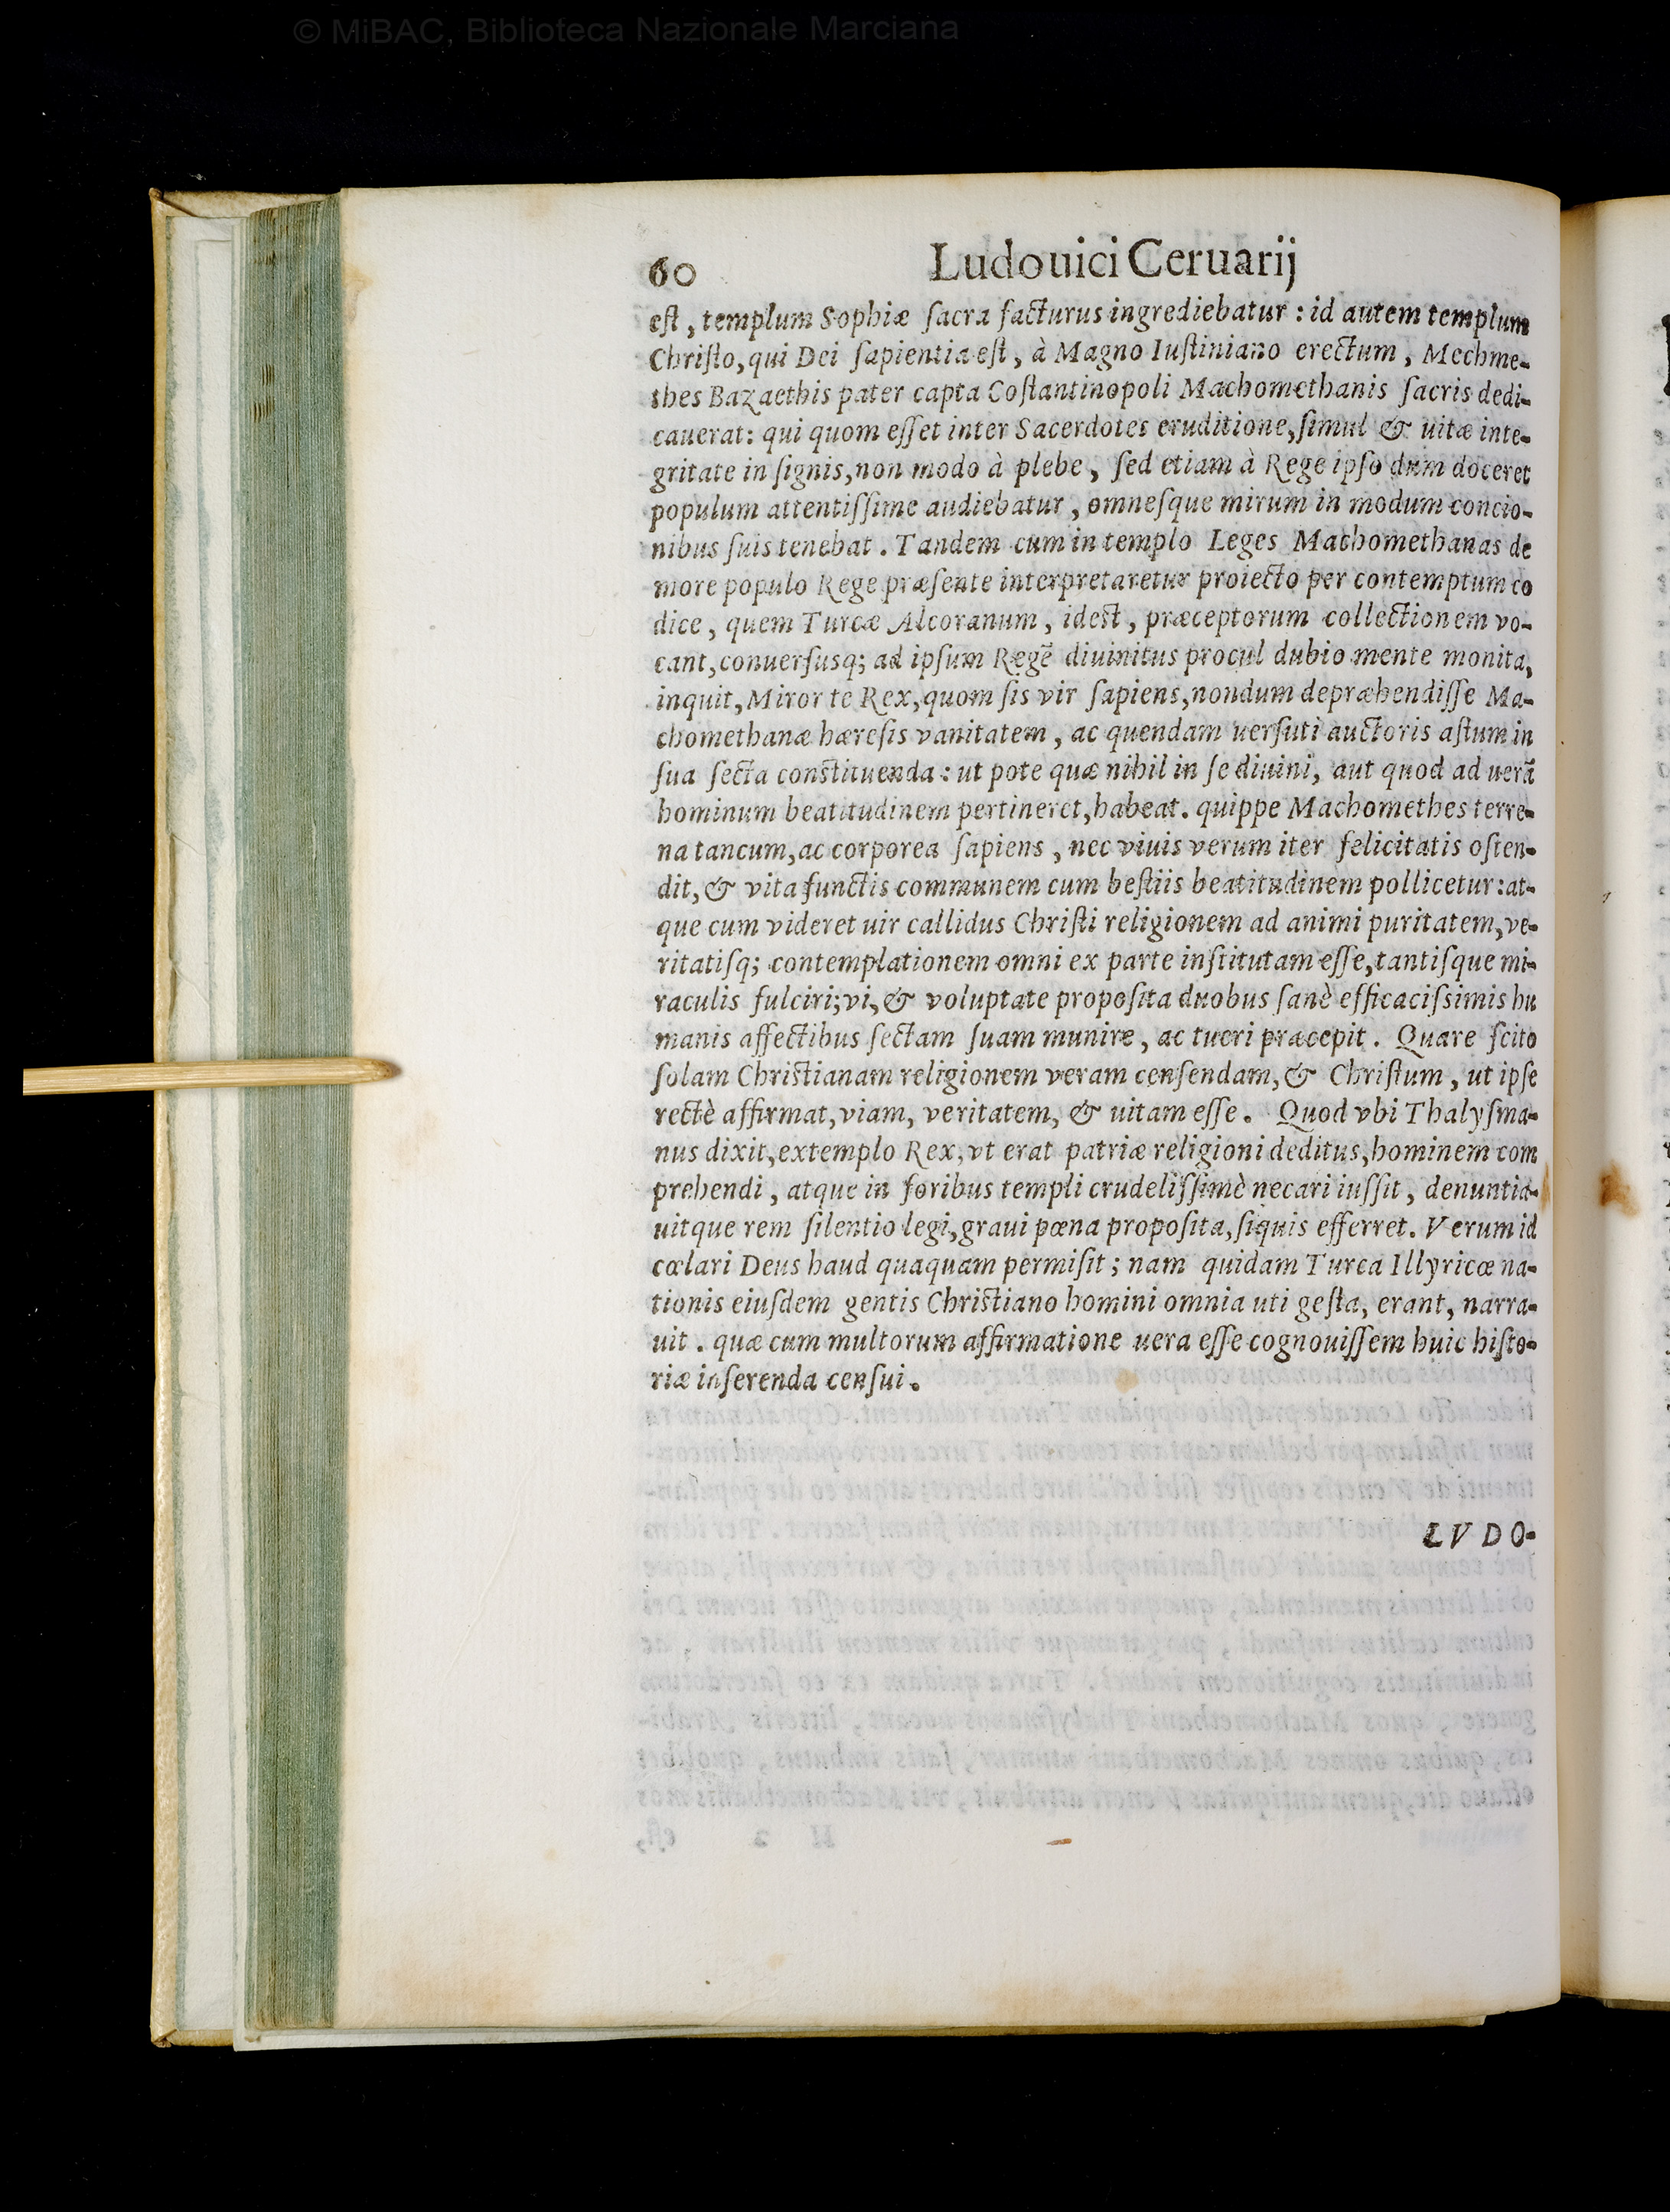 © MiBAC, Biblioteca Nazionale Marciana
60 Ludouici Ceruarij
eſt, templum Sophiæ ſacra facturus ingrediebatur: id autem templum
Chriſto, qui Dei ſapientia eſt, à Magno Iuſtiniano erectum, Mechme-
thes Bazaethis pater capta Coſtantinopoli Machomethanis ſacris dedi-
cauerat: qui quom eſſet inter Sacerdotes eruditione, ſimul & uitæ inte-
gritate in ſignis, non modo à plebe, ſed etiam à Rege ipſo dum doceret
populum attentiſſime audiebatur, omneſque mirum in modum concio-
nibus ſuis tenebat. Tandem cum in templo Leges Machomethanas de
more populo Rege præſente interpretaretur proiecto per contemptum co
dice, quem Turcæ Alcoranum, ideſt, præceptorum collectionem vo-
cant, conuerſusq; ad ipſum Regē diuinitus procul dubio mente monita,
inquit, Miror te Rex, quom ſis vir ſapiens, nondum depræhendiſſe Ma-
chomethanæ hæreſis vanitatem, ac quendam uerſuti auctoris aſtum in
ſua ſecta conſtituenda: ut pote quæ nihil in ſe diuini, aut quod ad uerã
hominum beatitudinem pertineret, habeat. quippe Machomethes terre-
na tancum, ac corporea ſapiens, nec viuis verum iter felicitatis oſten-
dit, & vita functis communem cum beſtiis beatitudinem pollicetur: at-
que cum videret uir callidus Chriſti religionem ad animi puritatem, ve-
ritatiſq; contemplationem omni ex parte inſtitutam eſſe, tantiſque mi-
raculis fulciri; vi, & voluptate propoſita duobus ſanè efficaciſsimis hu
manis affectibus ſectam ſuam munire, ac tueri præcepit. Quare ſcito
ſolam Chriſtianam religionem veram cenſendam, & Chriſtum, ut ipſe
rectè affirmat, viam, veritatem, & uitam eſſe. Quod vbi Thalyſma-
nus dixit, extemplo Rex, vt erat patriæ religioni deditus, hominem com
prehendi, atque in foribus templi crudeliſſimè necari iuſſit, denuntia-
uitque rem ſilentio legi, graui pœna propoſita, ſiquis efferret. Verum id
cœlari Deus haud quaquam permiſit; nam quidam Turca Illyricæ na-
tionis eiuſdem gentis Chriſtiano homini omnia uti geſta, erant, narra-
uit. quæ cum multorum affirmatione uera eſſe cognouiſſem huic hiſto-
riæ inſerenda cenſui.
LVDO-